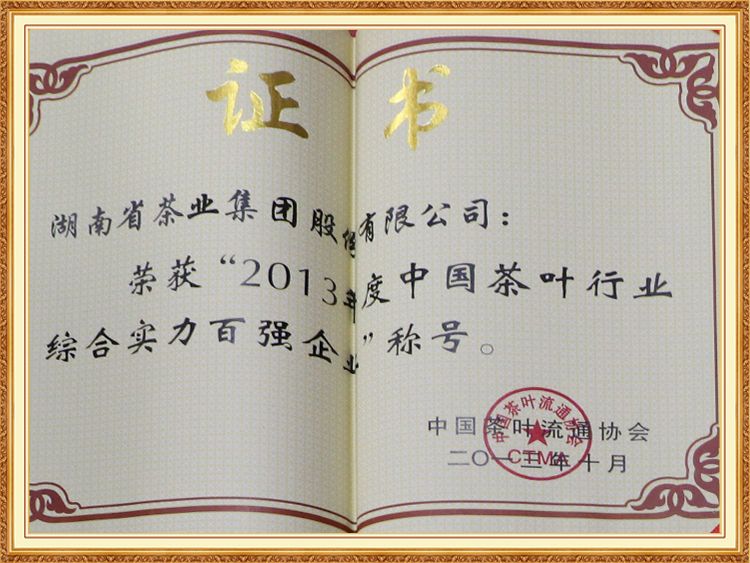 证书
湖南省茶业集团股份有限公司：
荣获“2013年度中国茶叶行业
综合实力百强企业”称号。
中国茶叶流通协会
二〇一三年十月
中国茶叶流通协会
CTMA